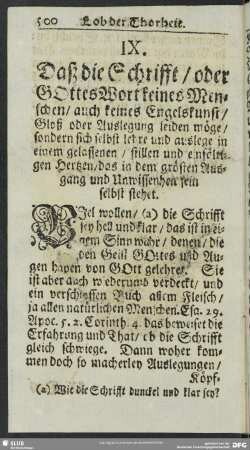 500 Lob der Thorheit.
IX.
Daß die Schrifft / oder
GOttes Wort keines Men-
schen / auch keines Engelskunst /
Gloß oder Auslegung leiden möge /
sondern sich selbst lehre und auslege in
einem gelassenen / stillen und einfälti-
gen Hertzen / das in dem grösten Aus-
gang und Unwissenheit sein
selbst stehet.
VJel wollen / (a) die Schrifft
sey hell und klar / das ist in ei-
nem Sinn wahr / denen / die
den Geist GOttes und Au-
gen haben von Gott gelehret. Sie
ist aber auch wiederumb verdeckt / und
ein verschlossen Buch allem Fleisch /
ja allen natürlichen Menschen. Esa. 29.
Apoc. 5. 2. Corinth. 4. das beweiset die
Erfahrung und That / ob die Schrifft
gleich schwiege. Dann woher kom-
men doch so macherley Auslegungen /
Köpf-
(a) Wie die Schrifft dunckel und klar sey?
SLUB